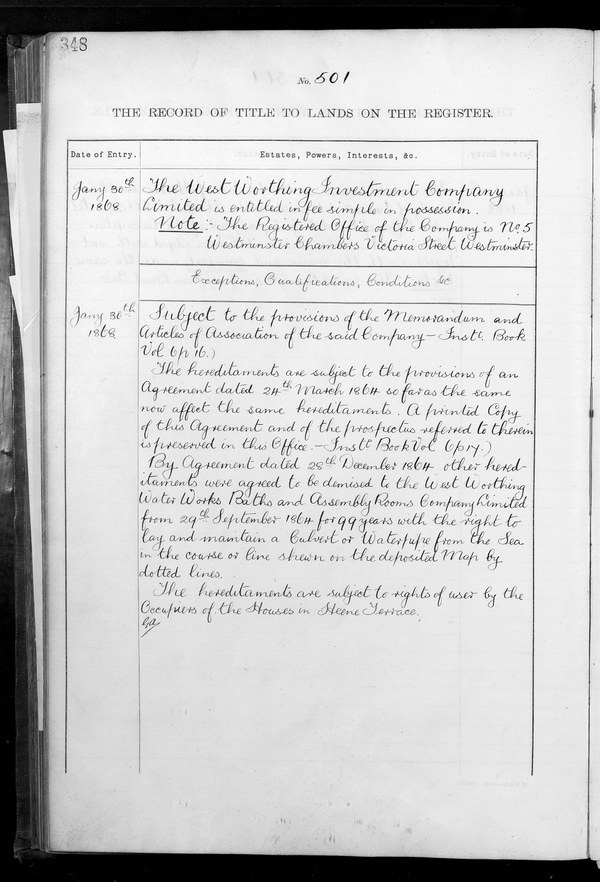 348
No. 501
THE RECORD OF TITLE TO LANDS ON THE REGISTER.
Date of Entry.
Estates, Powers, Interests, &c.
Jany 30th
1868
The West Worthing Investment Company
Limited is entitled in fee simple in possession.
Note:- The Registered Office of the Company is No. 5
Westminster Chambers Victoria Street Westminster.
Exceptions, Qualifications, Conditions &c
Jany 30th
1868
Subject to the provisions of the Memorandum and
Articles of Association of the said Company - Instt. Book
Vol 6 p 16.)
The hereditaments are subject to the provisions of an
Agreement dated 24th March 1864 so far as the same
now affect the same hereditaments. A printed Copy
of this Agreement and of the prospectus referred to therein
is preserved in this Office. - Instt Book Vol 6 p 17.)
By Agreement dated 28th December 1864 other hered-
itaments were agreed to be demised to the West Worthing
Water Works Baths and Assembly Rooms Company Limited
from 29th September 1864 for 99 years with the right to
lay and maintain a Culvert or Waterpipe from the Sea
in the course or line shewn on the deposited Map by
dotted lines.
The hereditaments are subject to rights of user by the
Occupiers of the Houses in Heene Terrace.